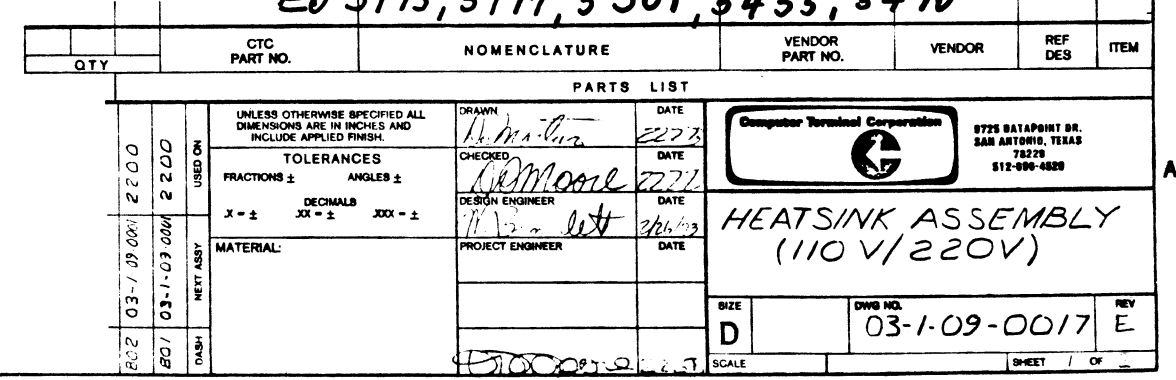 QTY
CTC PART NO.
NOMENCLATURE
VENDOR PART NO.
VENDOR
REF DES
ITEM
PARTS LIST
B02 03-1-09-0001 2200
B01 03-1-09-0001 2200
DASH NEXT ASSY USED ON
UNLESS OTHERWISE SPECIFIED ALL
DIMENSIONS ARE IN INCHES AND
INCLUDE APPLIED FINISH.
TOLERANCES
FRACTIONS ± ANGLES ±
DECIMALS
.X = ± .XX = ± .XXX = ±
MATERIAL:
DRAWN DATE
CHECKED DATE
Moore
DESIGN ENGINEER DATE
2/26/73
PROJECT ENGINEER DATE
Computer Terminal Corporation
9725 DATAPOINT DR.
SAN ANTONIO, TEXAS
78229
512-696-4520
A
HEATSINK ASSEMBLY
(110V/220V)
SIZE
D
DWG NO.
03-1-09-0017
REV
E
SCALE
SHEET 1 OF